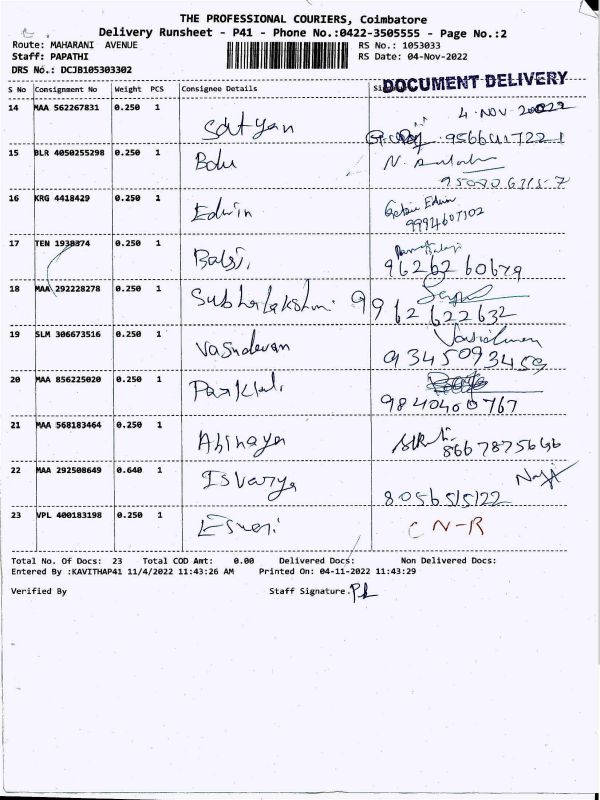 THE PROFESSIONAL COURIERS, Coimbatore
Delivery Runsheet - P41 - Phone No.:0422-3505555 - Page No.:2
Route: MAHARANI AVENUE
Staff: PAPATHI
DRS No.: DCJB105303302
RS No.: 1053033
RS Date: 04-Nov-2022
DOCUMENT DELIVERY
S No Consignment No Weight PCS Consignee Details
4-NOV-2022
14 MAA 562267831 0.250 1 Satyan
15 BLR 4050255298 0.250 1 Balu
16 KRG 4418429 0.250 1 Edwin
Edwin
9994607102
17 TEN 1938374 0.250 1 Balaji
96262 60679
18 MAA 292228278 0.250 1 Subhalakshmi 9962622632
19 SLM 306673516 0.250 1 Vasudevan
9345093459
20 MAA 856225020 0.250 1
9840400767
21 MAA 568183464 0.250 1 Abinaya
22 MAA 292508649 0.640 1 Isvarya
8056515122
23 VPL 400183198 0.250 1 CN-R
Total No. Of Docs: 23 Total COD Amt: 0.00 Delivered Docs: Non Delivered Docs:
Entered By :KAVITHAP41 11/4/2022 11:43:26 AM Printed On: 04-11-2022 11:43:29
Verified By Staff Signature.